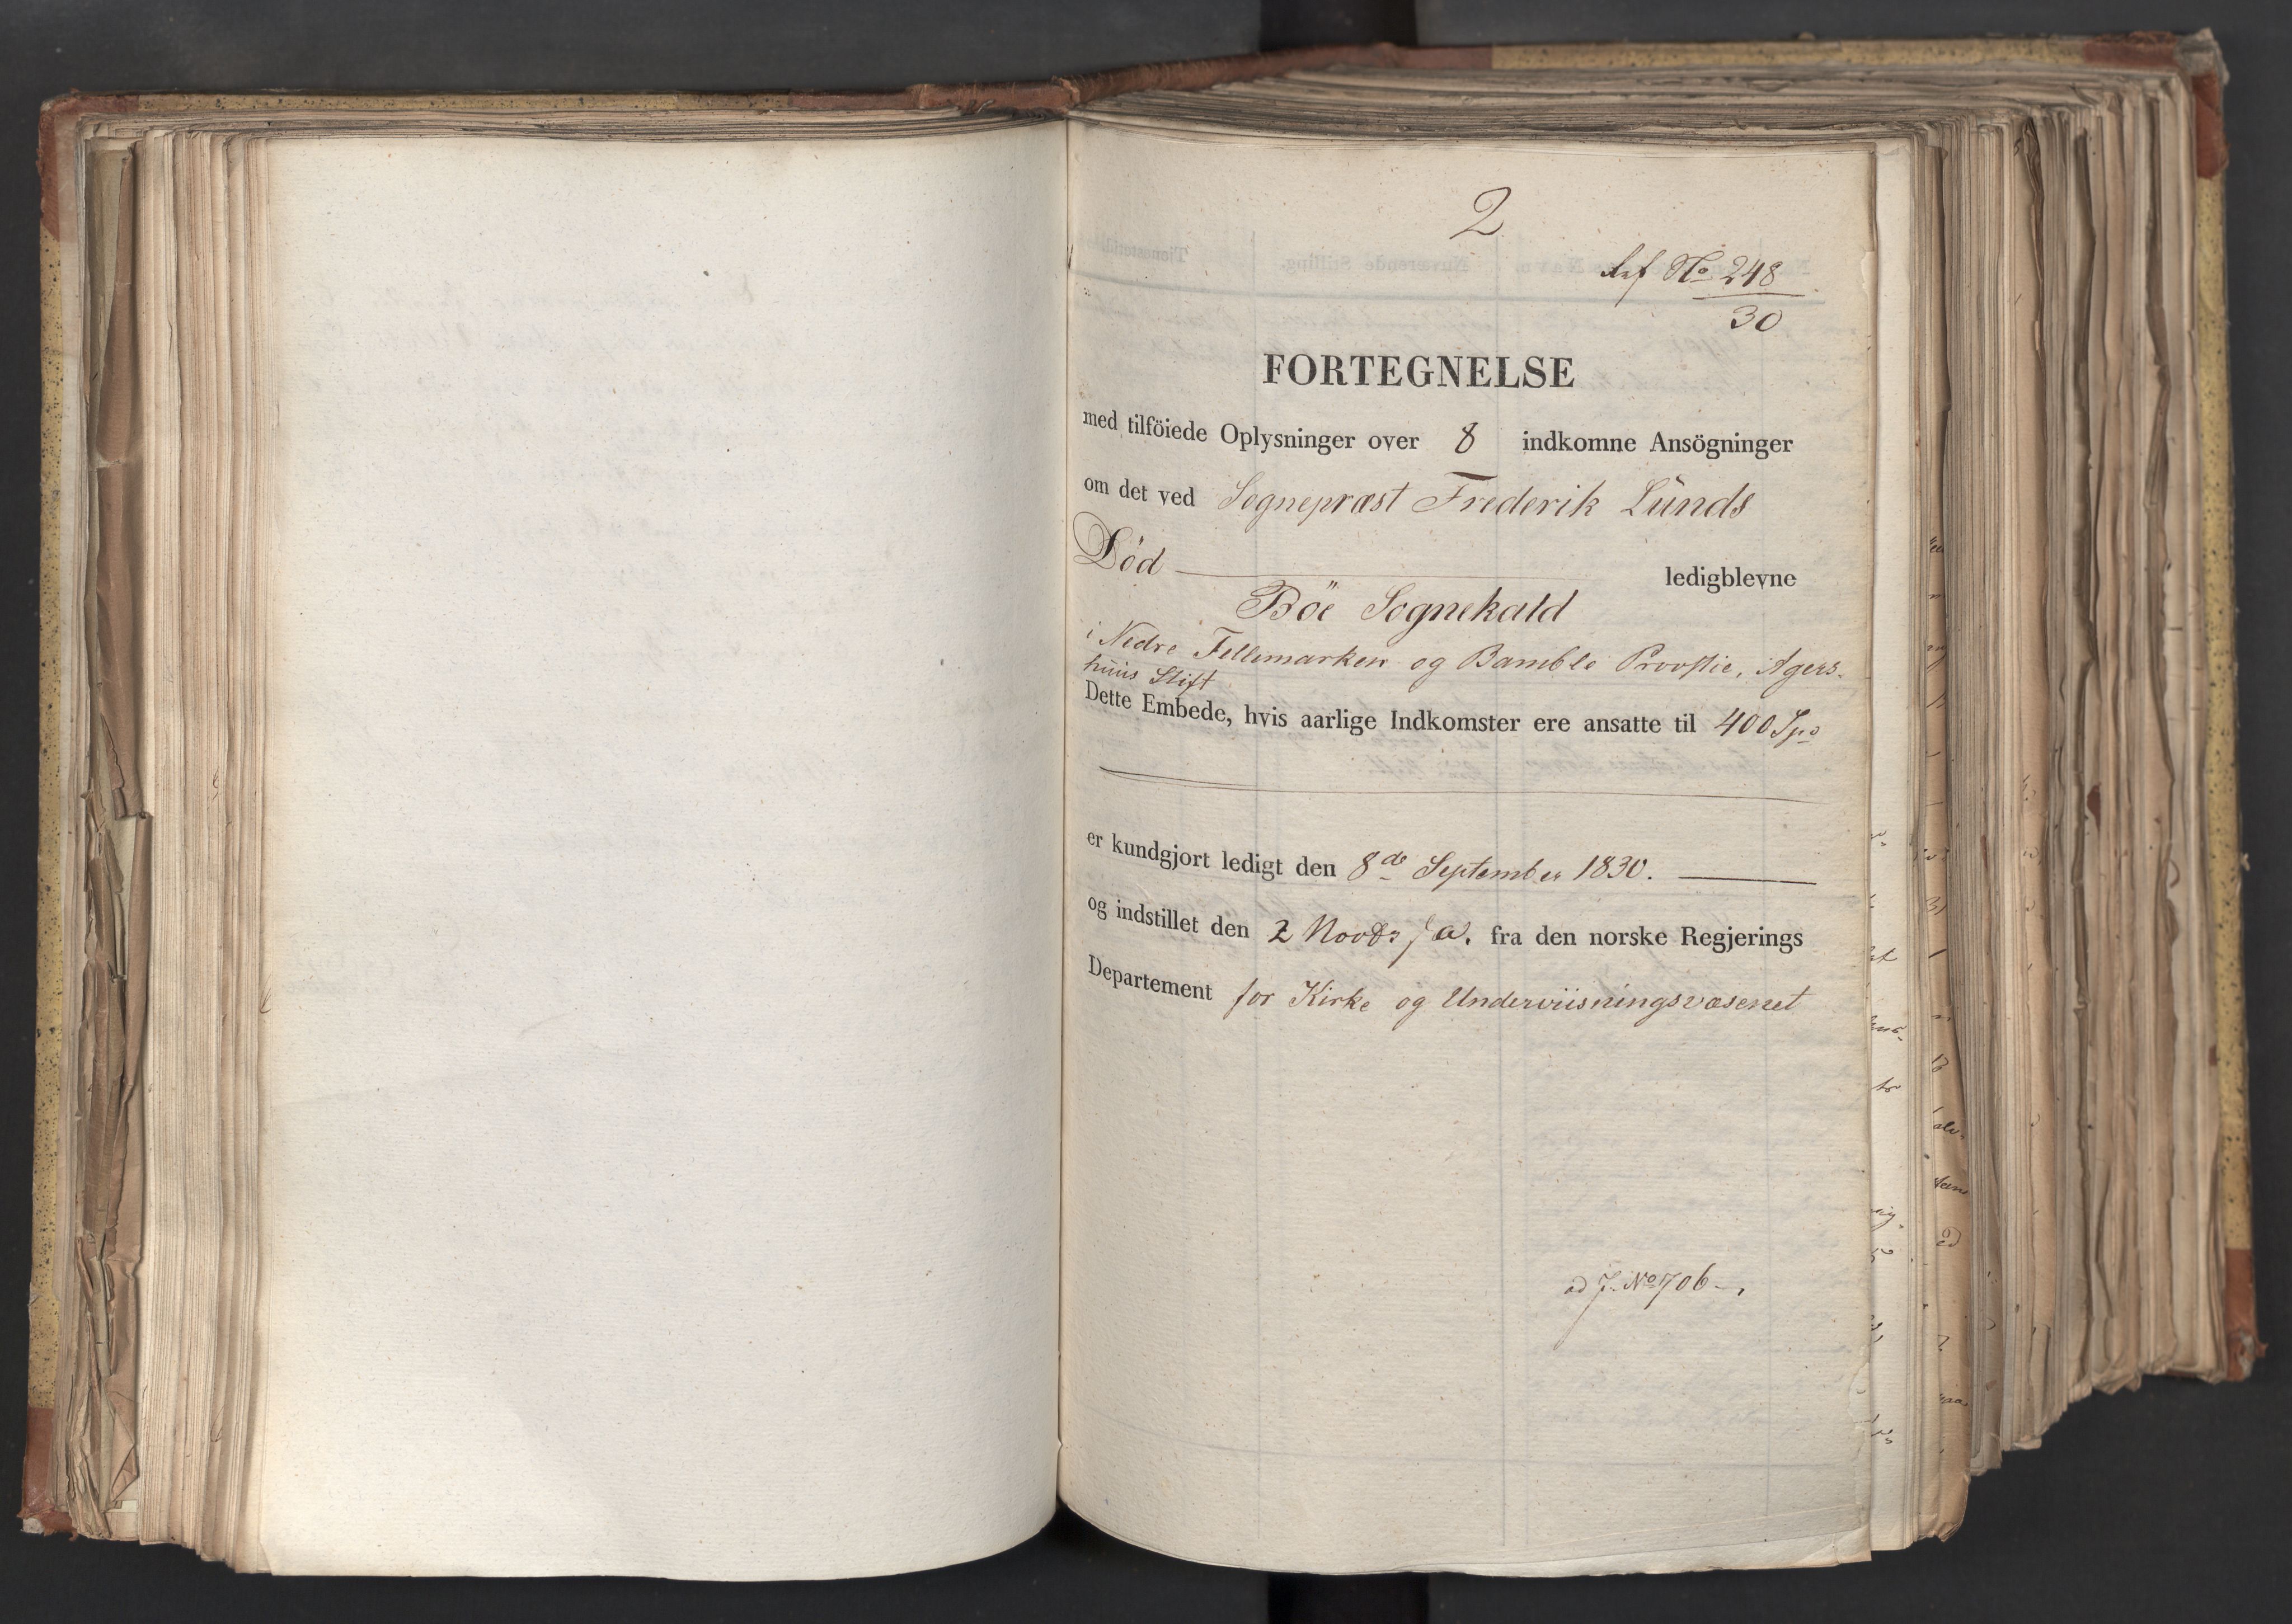 2
Ref No 248
30
FORTEGNELSE
med tilföiede Oplysninger over 8 indkomne Ansögninger
om det ved Sognepræst Frederik Lunds
Död ledigblevne
Böe Sognekald
i Nedre Tellemarken og Bamble Provstie, Agers-
huus Stift
Dette Embede, hvis aarlige Indkomster ere ansatte til 400 Spd
er kundgjort ledigt den 8de September 1830.
og indstillet den 2 Novbr s. a. fra den norske Regjerings
Departement for Kirke og Underviisningsvæsenet
ad J. No 706